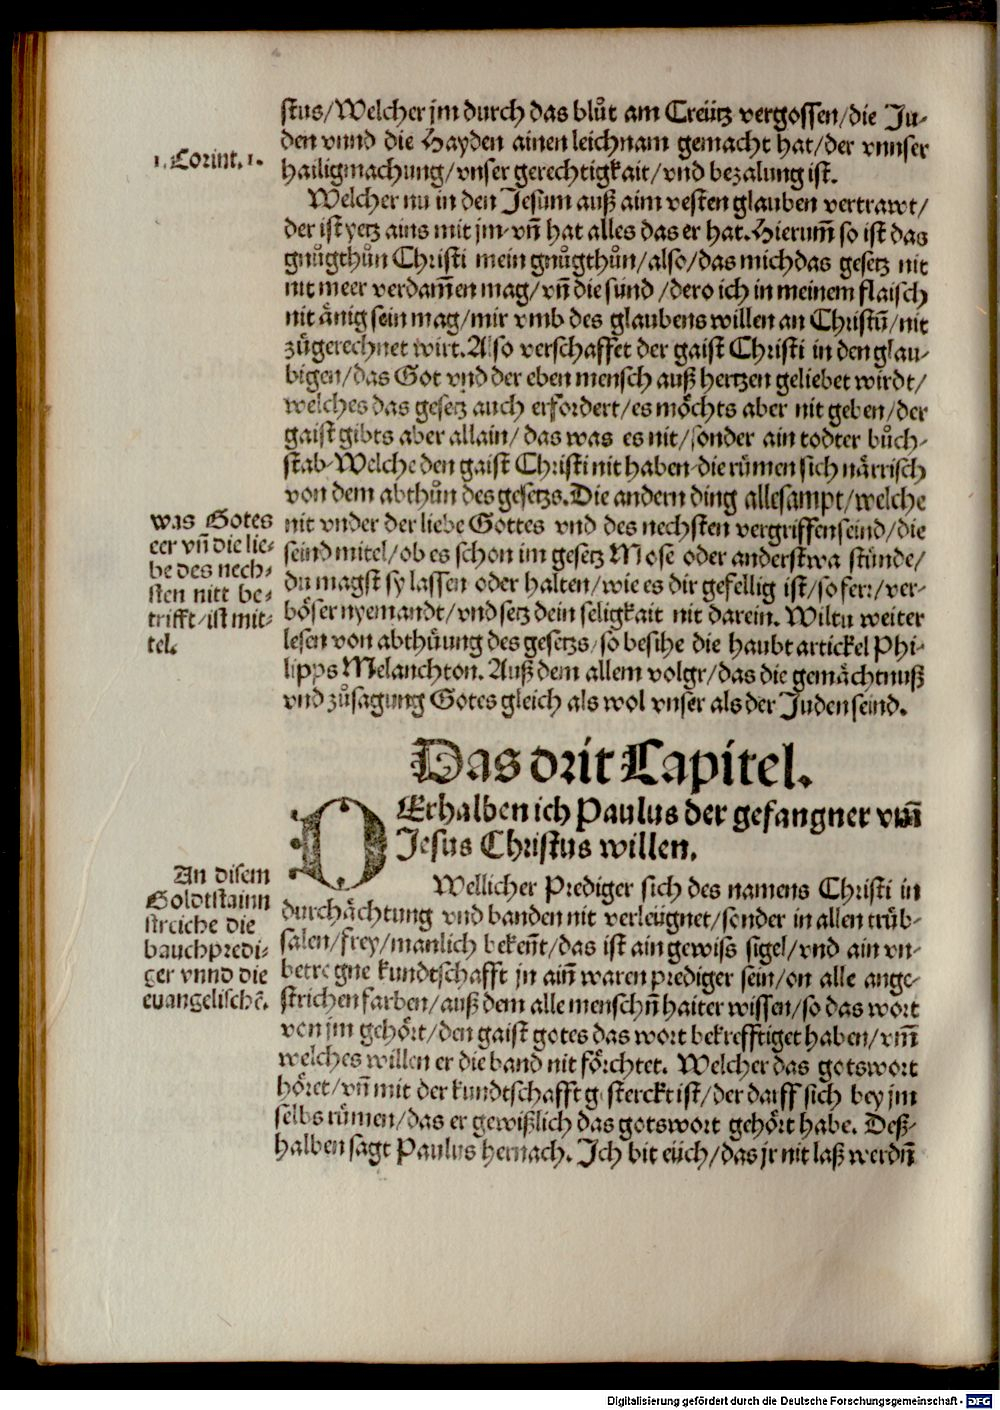 stus/Welcher jm durch das blůt am Creütz vergossen/die Ju-
den vnnd die Hayden ainen leichnam gemacht hat/der vnnser
1. Corint. 1.
hailigmachung/vnser gerechtigkait/vnd bezalung ist.
Welcher nu in den Jesum auß aim vesten glauben vertrawt/
der ist yetz ains mit jm/vñ hat alles das er hat. Hierum̃ so ist das
gnůgthůn Christi mein gnůgthůn/also/das mich das gesetz nit
nit meer verdam̃en mag/vñ die sünd/dero ich in meinem flaisch
nit änig sein mag/mir vmb des glaubens willen an Christū/nit
zůgerechnet wirt. Also verschaffet der gaist Christi in den glau-
bigen/das Got vnd der eben mensch auß hertzen geliebet wirdt/
welches das gesetz auch erfordert/es möchts aber nit geben/der
gaist gibts aber allain/das was es nit/sonder ain todter bůch-
stab. Welche den gaist Christi nit haben die rümen sich närrisch
von dem abthůn des gesetzs. Die andern ding allesampt/welche
nit vnder der liebe Gottes vnd des nechsten vergriffen seind/die
seind mitel/ob es schon im gesetz Mose oder anderstwa stünde/
du magst sy lassen oder halten/wie es dir gefellig ist/so ferr/ver-
böser nyemandt/vnd setz dein seligkait nit darein. Wiltu weiter
lesen von abthůung des gesetzs/so besihe die haubt artickel Phi-
lipps Melanchton. Auß dem allem volgt/das die gemächtnuß
vnd zůsagung Gotes gleich als wol vnser als der Juden seind.
was Gotes
eer vñ die lie-
be des nech-
sten nitt be-
trifft/ist mit-
tel.
Das drit Capitel.
DErhalben ich Paulus der gefangner vm̃
Jesus Christus willen.
Wellicher Prediger sich des namens Christi in
durchächtung vnd banden nit verleügnet/sonder in allen trüb-
salen/frey/manlich bekeñt/das ist ain gewiss sigel/vnd ain vn-
betrogne kundtschafft jn aiñ waren prediger sein/on alle ange-
strichen farben/auß dem alle menschñ haiter wissen/so das wort
von jm gehört/den gaist gotes das wort bekrefftiget haben/vm̃
welches willen er die band nit förchtet. Welcher das gotswort
höret/vñ mit der kundtschafft gesterckt ist/der darff sich bey jm
selbs rümen/das er gewißlich das gotswort gehört habe. Deß-
halben sagt Paulus hernach. Ich bit eüch/das jr nit laß werdñ
An disem
Goldtstainn
streiche die
bauchpredi-
ger vnnd die
euangelischē.
Digitalisierung gefördert durch die Deutsche Forschungsgemeinschaft - DFG